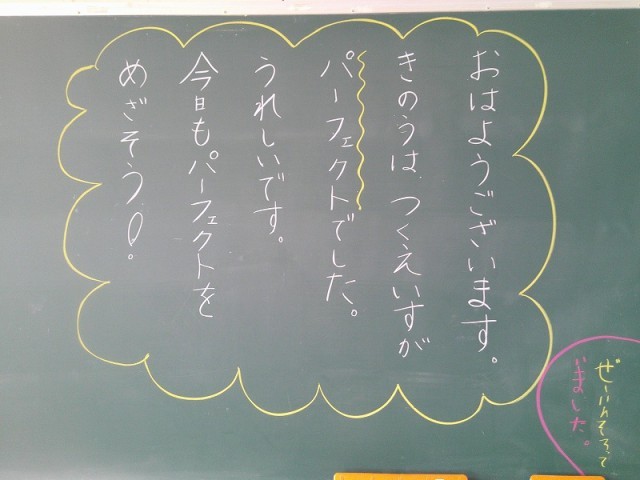 おはようございます。
きのうは、つくえいすが
パーフェクトでした。
うれしいです。
今日もパーフェクトを
めざそう！
ぜんいんそろって
いました。